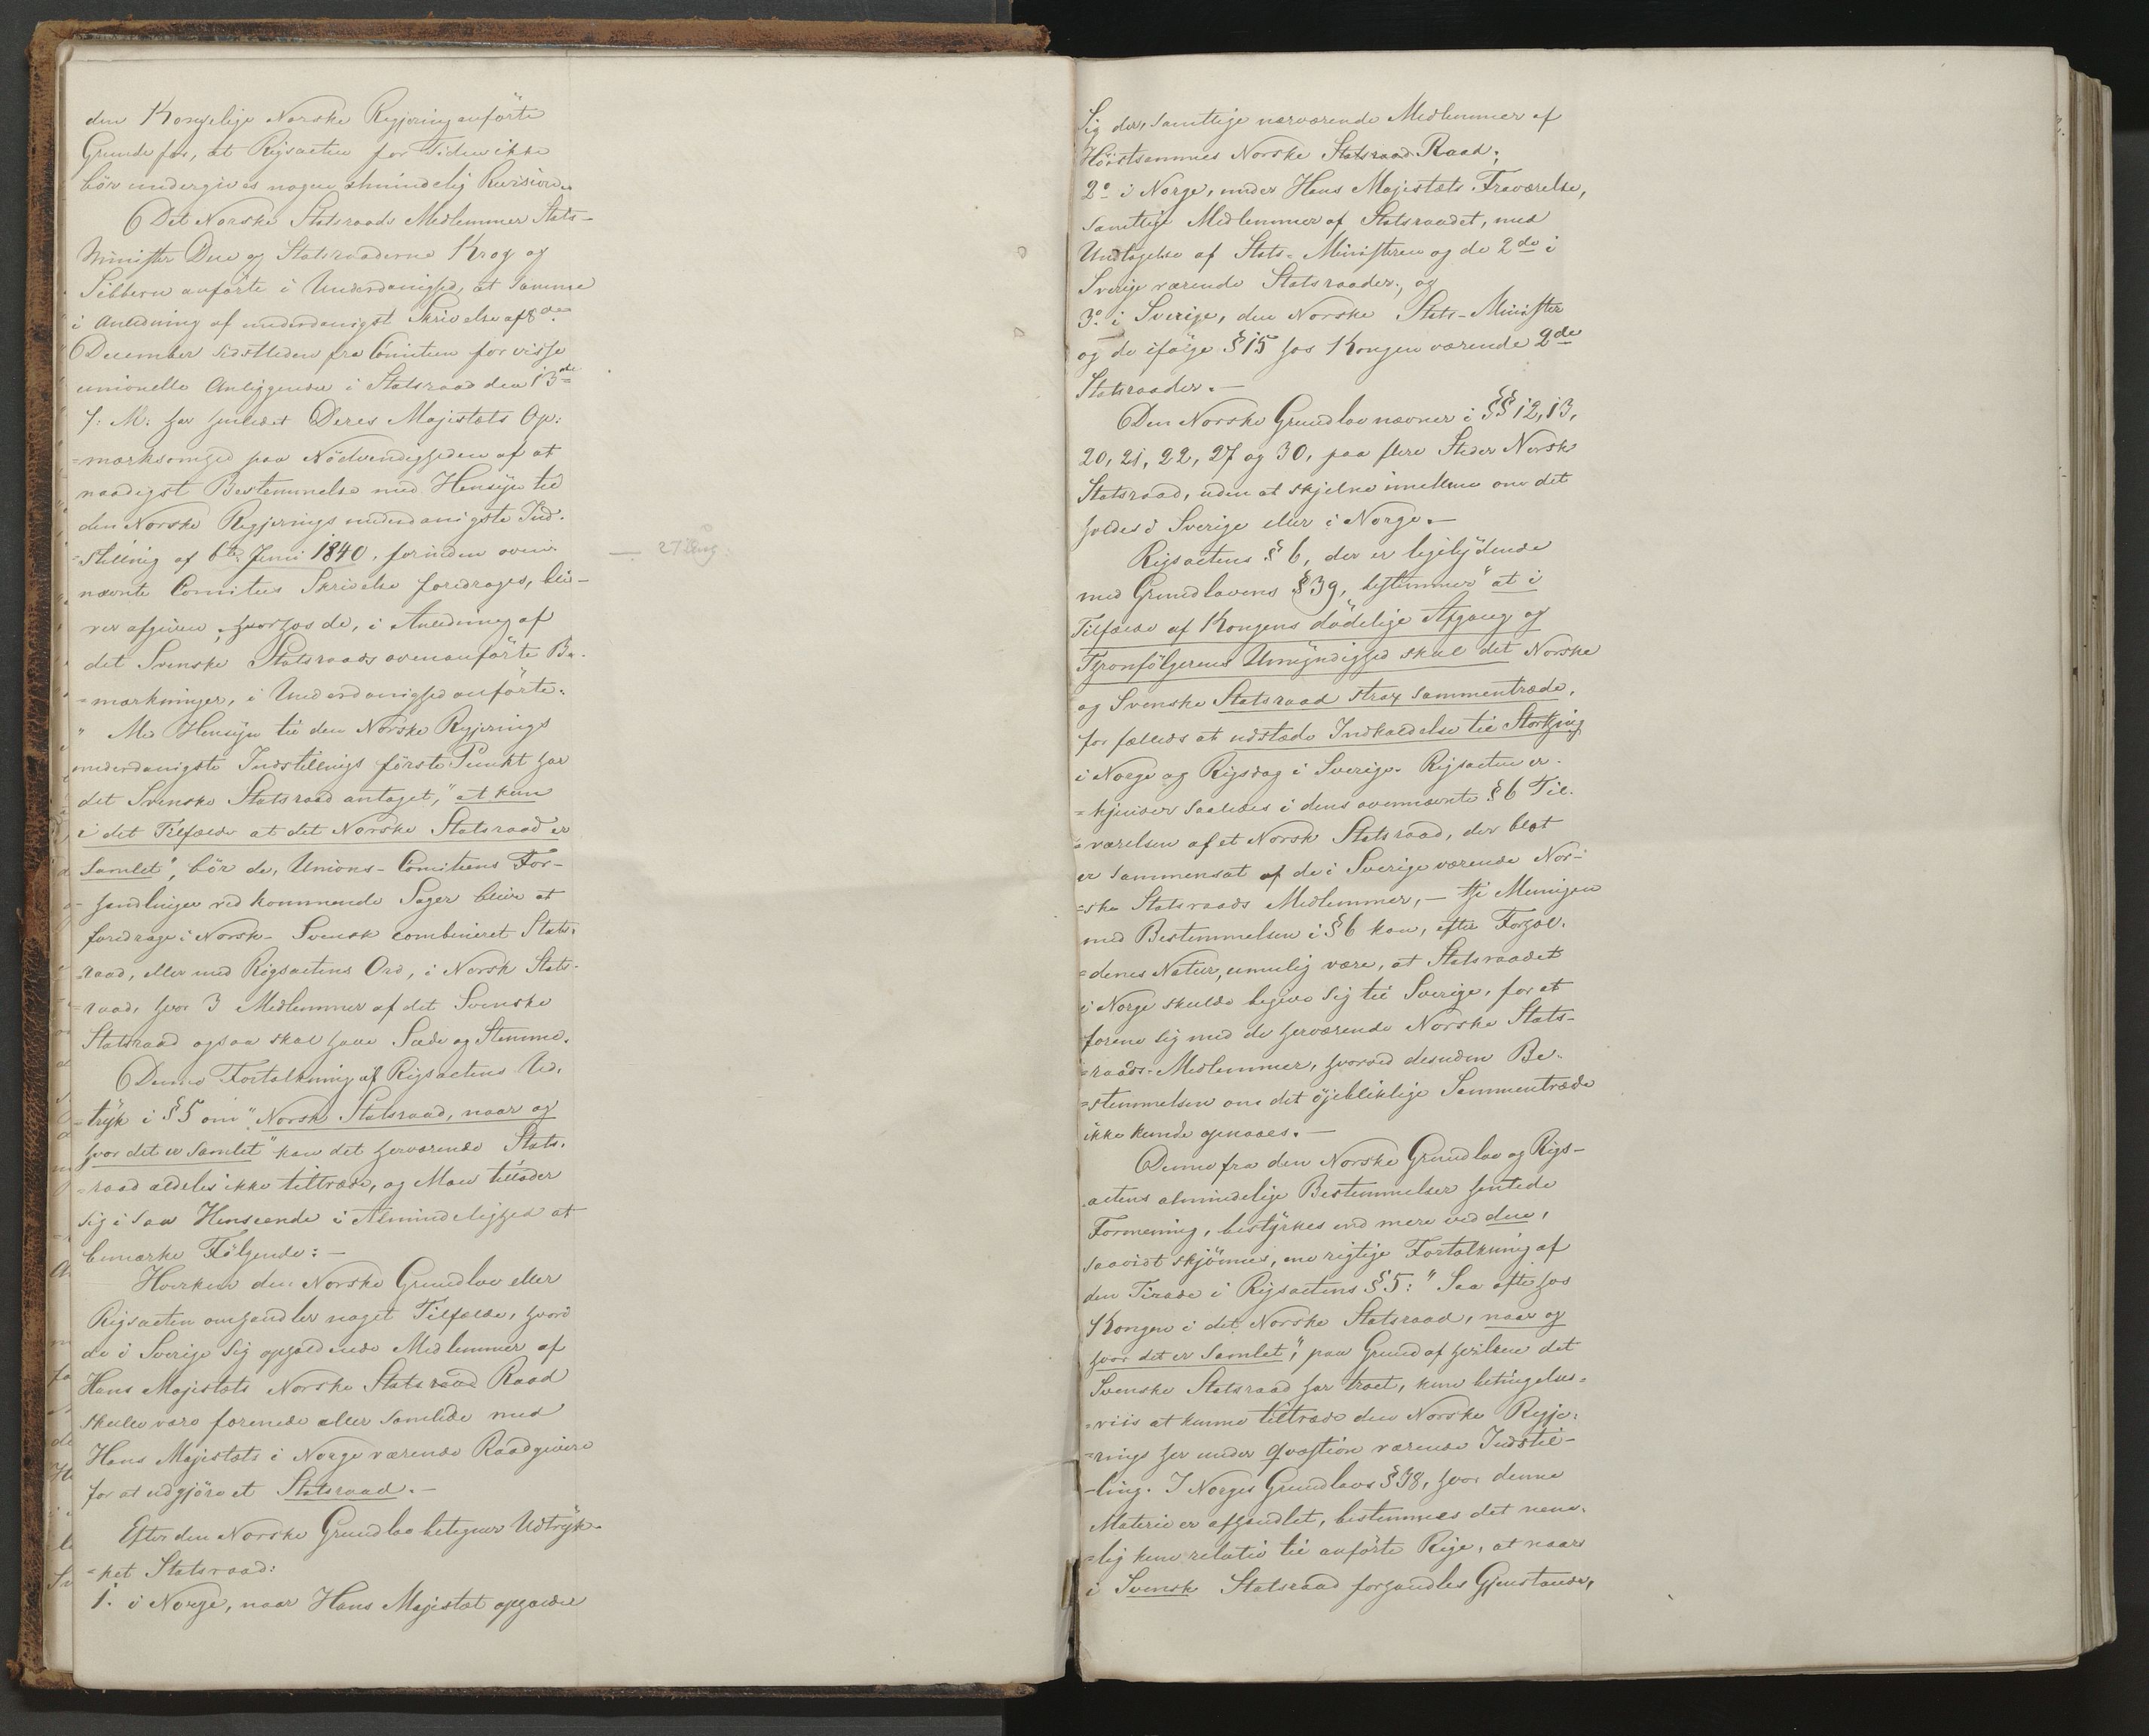 den Kongelige Norske Regjering anförte
Grunde for, at Rigsacten for Tiden ikke
bör undergives nogen almindelig Revision.
Det Norske Statsraads Medlemmer Stats-
Minister Due og Statsraaderne Krog og
Sibbern anförte i Underdanighed, at samme
i Anledning af underdanigst Skrivelse af 8de
December sidstleden fra Comiteen for visse
unionelle Anliggender i Statsraad den 13de
s: M: har henledet Deres Majestæts Op:
=mærksomhed paa Nödvendigheden af at
naadigst Bestemmelse med Hensyn til
den Norske Regjerings underdanigste Ind-
=stilling af 6te Juni 1840, forinden oven-
nævnte Comitees Skrivelse foredrages, bli-
ver afgiven, hvorhos de, i Anledning af
det Svenske Statsraads ovenanförte Be-
=mærkninger, i Underdanighed anförte:
" Med Hensyn til den Norske Regjerings
underdanigste Indstillings förste Punkt har
det Svenske Statsraad antaget, "at kun
i det Tilfælde at det Norske Statsraad er
samlet", bör de, Unions-Comiteens For-
=handlinger vedkommende Sager blive at
foredrage i Norsk-Svensk combineret Stats-
=raad, eller med Rigsactens Ord, i Norsk Stats-
=raad, hvor 3 Medlemmer af det Svenske
Statsraad ogsaa skal have Sæde og Stemme.
Denne Fortolkning af Rigsactens Ud-
=tryk i § 5 om "Norsk Statsraad, naar og
hvor det er samlet" kan det herværende Stats-
=raad aldeles ikke tiltræde, og Man tillader
sig i saa Henseende i Almindelighed at
bemærke Fölgende: —
Hverken den Norske Grundlov eller
Rigsacten omhandler noget Tilfælde, hvori
de i Sverige sig opholdende Medlemmer af
Hans Majestæts Norske Statsraad Raad
skulle være forenede eller samlede med
Hans Majestæts i Norge værende Raadgivere
for at udgjöre et Statsraad. —
Efter den Norske Grundlov betegner Udtryk-
=ket Statsraad:
1. i Norge, naar Hans Majestæt opholder
— 27 Aug.
sig der, samtlige nærværende Medlemmer af
Höistsammes Norske Statsraad Raad;
2° i Norge, under Hans Majestæts Fraværelse,
samtlige Medlemmer af Statsraadet, med
Undtagelse af Stats-Ministeren og de 2de i
Sverige værende Statsraader, og
3° i Sverige, den Norske Stats-Minister
og de ifölge § 15 hos Kongen værende 2de
Statsraader. —
Den Norske Grundlov nævner i §§ 12, 13,
20, 21, 22, 27 og 30, paa flere Steder Norsk
Statsraad, uden at skjelne imellem om det
holdes i Sverige eller i Norge. —
Rigsactens § 6, der er ligelydende
med Grundlovens § 39, bestemmer "at i
Tilfælde af Kongens dödelige Afgang og
Thronfölgerens Umyndighed skal det Norske
og Svenske Statsraad strax sammentræde,
for fælleds at udstæde Indkaldelse til Storthing
i Norge og Rigsdag i Sverige. Rigsacten er-
=kjender saaledes i dens ovennævnte § 6 Til-
=værelsen af et Norsk Statsraad, der blot
er sammensat af de i Sverige værende Nor-
=ske Statsraads Medlemmer, — thi Meningen
med Bestemmelsen i § 6 kan, efter Forhol-
=denes Natur, umulig være, at Statsraadet
i Norge skulde begive sig til Sverige, for at
forene sig med de herværende Norske Stats-
=raads-Medlemmer, hvorved desuden Be-
=stemmelsen om det öjeblikkelige Sammentræde
ikke kunde opnaaes. —
Denne fra den Norske Grundlov og Rigs-
actens almindelige Bestemmelser hentede
Formening, bestyrkes end mere ved den,
saavidt skjönnes, ene rigtige Fortolkning af
den Tirade i Rigsactens § 5: "Saa ofte hos
Kongen i det Norske Statsraad, naar og
hvor det er samlet", paa Grund af hvilken det
Svenske Statsraad har troet, kun betingelses-
=viis at kunne tiltræde den Norske Regje-
=rings her under Qvæstion værende Indstil-
=ling. I Norges Grundlovs § 38, hvor denne
Materie er afhandlet, bestemmes det nem-
=lig kun relativ til anförte Rige, at naar
i Svensk Statsraad forhandles Gjenstande,